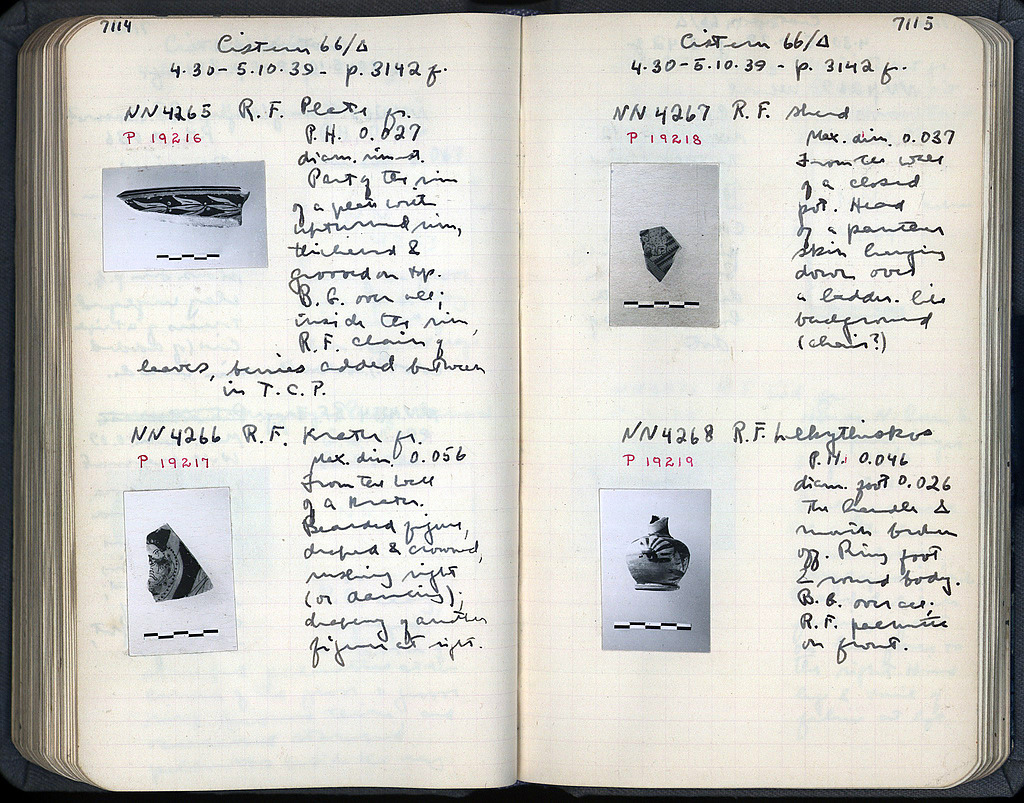 7114
Cistern 66/Δ
4.30-5.10.39 - p. 3142 f.
NN 4265 R. F. Plate fr.
P 19216
P.H. 0.027
diam. rim est.
Part of the rim
of a plate with
upturned rim,
thickened &
grooved on top.
B. G. over all;
inside the rim,
R.F. chain of
leaves, berries added between
in T. C. P.
NN 4266 R. F. Krater fr.
P 19217
Max. dim. 0.056
From the wall
of a Krater.
Bearded figure,
draped & crowned,
rushing right
(or dancing);
drapery of another
figure at right.
7115
Cistern 66/Δ
4.30-5.10.39 - p. 3142 f.
NN 4267 R. F. sherd
P 19218
Max. dim. 0.037
From the wall
of a closed
pot. Head
of a panther
skin hanging
down over
a ladder-like
background
(chair?)
NN 4268 R. F. Lekythiskos
P 19219
P.H. 0.046
diam. foot 0.026
The handle &
mouth broken
off. Ring foot
& round body.
B. G. over all;
R. F. palmette
on front.